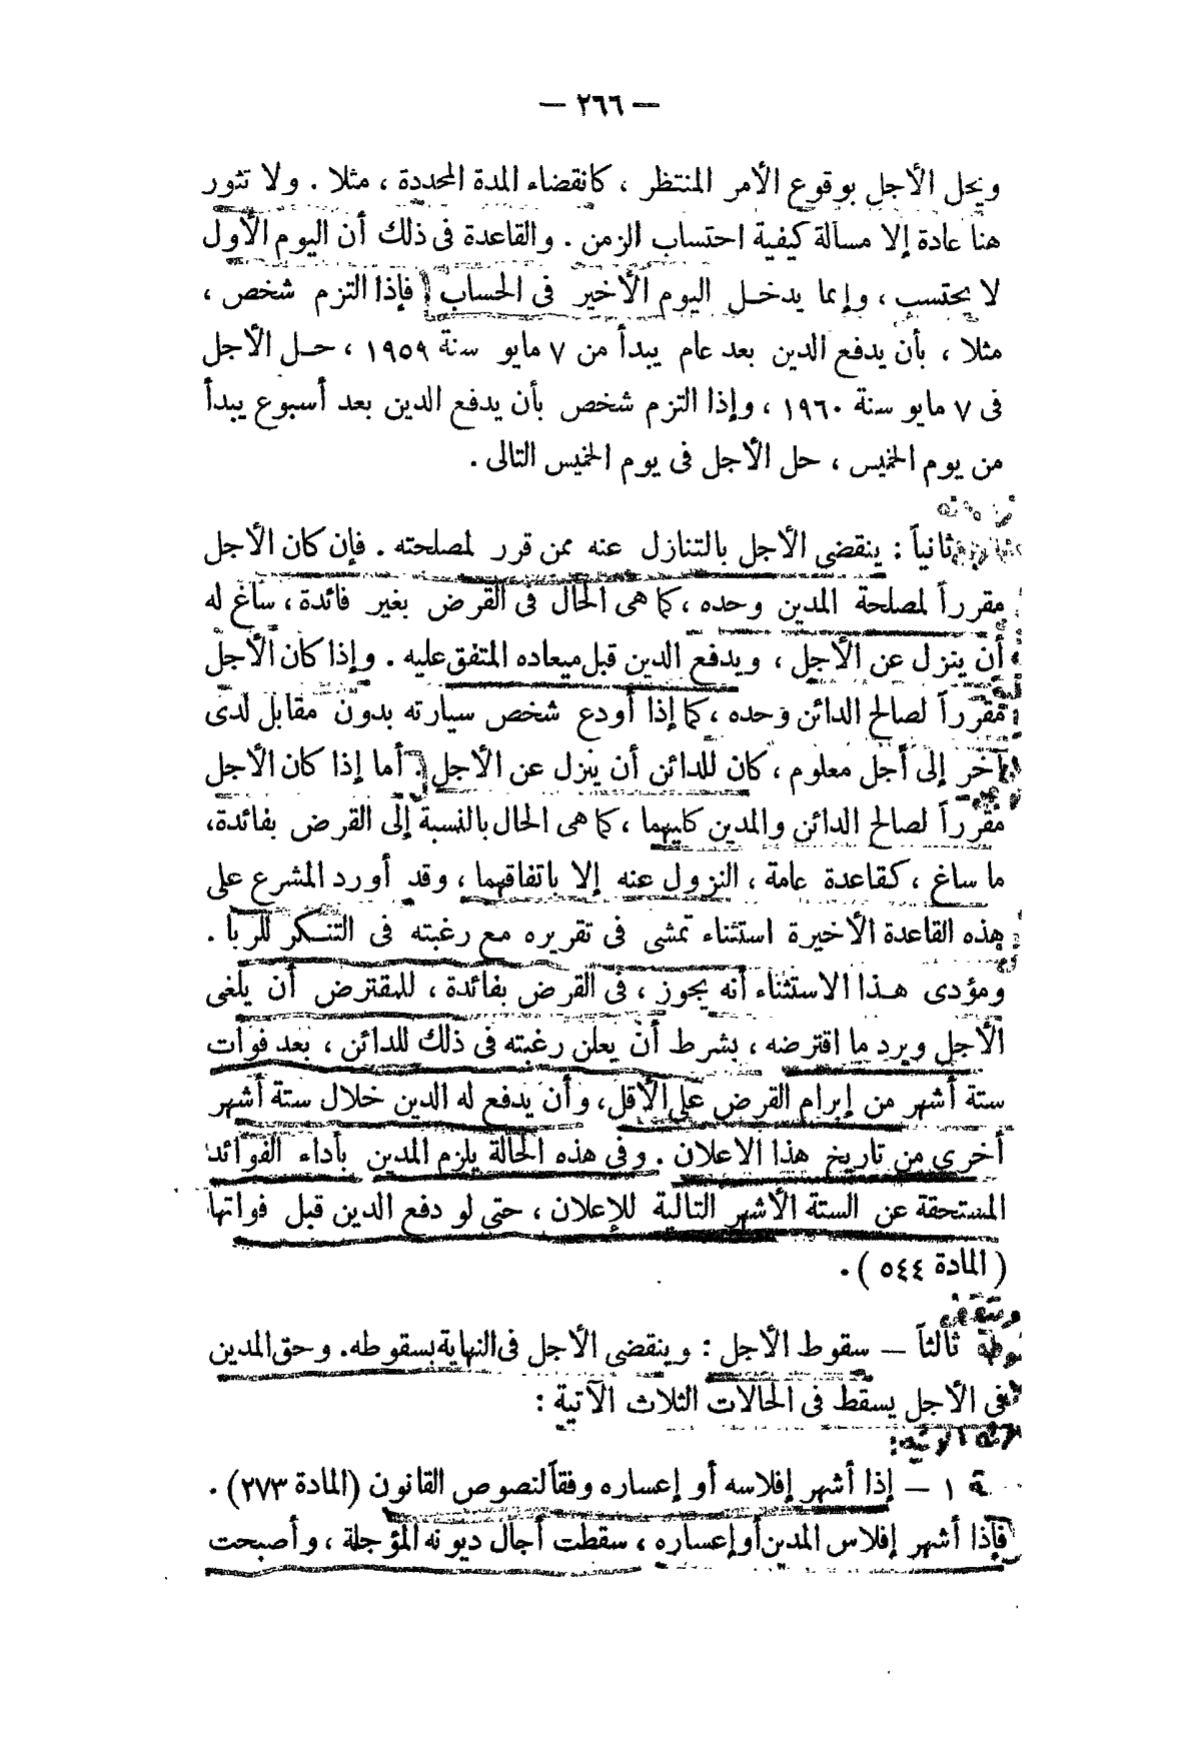 — ٢٦٦ —
ويحل الأجل بوقوع الأمر المنتظر ، كانقضاء المدة المحددة ، مثلا . ولا تثور
هنا عادة إلا مسألة كيفية احتساب الزمن . والقاعدة فى ذلك أن اليوم الأول
لا يحتسب ، وإنما يدخل اليوم الأخير فى الحساب . فإذا التزم شخص ،
مثلا ، بأن يدفع الدين بعد عام يبدأ من ٧ مايو سنة ١٩٥٩ ، حل الأجل
فى ٧ مايو سنة ١٩٦٠ ، وإذا التزم شخص بأن يدفع الدين بعد أسبوع يبدأ
من يوم الخميس ، حل الأجل فى يوم الخميس التالى .
ثانياً : ينقضى الأجل بالتنازل عنه ممن قرر لمصلحته . فإن كان الأجل
مقرراً لمصلحة المدين وحده ، كما هى الحال فى القرض بغير فائدة ، ساغ له
أن ينزل عن الأجل ، ويدفع الدين قبل ميعاده المتفق عليه . وإذا كان الأجل
مقرراً لصالح الدائن وحده ، كما إذا أودع شخص سيارته بدون مقابل لدى
آخر إلى أجل معلوم ، كان للدائن أن ينزل عن الأجل . أما إذا كان الأجل
مقرراً لصالح الدائن والمدين كليهما ، كما هى الحال بالنسبة إلى القرض بفائدة،
ما ساغ ، كقاعدة عامة ، النزول عنه إلا باتفاقهما ، وقد أورد المشرع على
هذه القاعدة الأخيرة استثناء تمشى فى تقريره مع رغبته فى التنكر للربا .
ومؤدى هذا الاستثناء أنه يجوز ، فى القرض بفائدة ، للمقترض أن يلغى
الأجل ويرد ما اقترضه ، بشرط أن يعلن رغبته فى ذلك للدائن ، بعد فوات
ستة أشهر من إبرام القرض على الأقل، وأن يدفع له الدين خلال ستة أشهر
أخرى من تاريخ هذا الاعلان . وفى هذه الحالة يلزم المدين بأداء الفوائد
المستحقة عن الستة الأشهر التالية للإعلان ، حتى لو دفع الدين قبل فواتها
( المادة ٥٤٤ ) .
ثالثاً — سقوط الأجل : وينقضى الأجل فى النهاية بسقوطه. وحق المدين
فى الأجل يسقط فى الحالات الثلاث الآتية :
١ — إذا أشهر إفلاسه أو إعساره وفقاً لنصوص القانون (المادة ٢٧٣) .
فإذا أشهر إفلاس المدين أو إعساره ، سقطت أجال ديونه المؤجلة ، وأصبحت